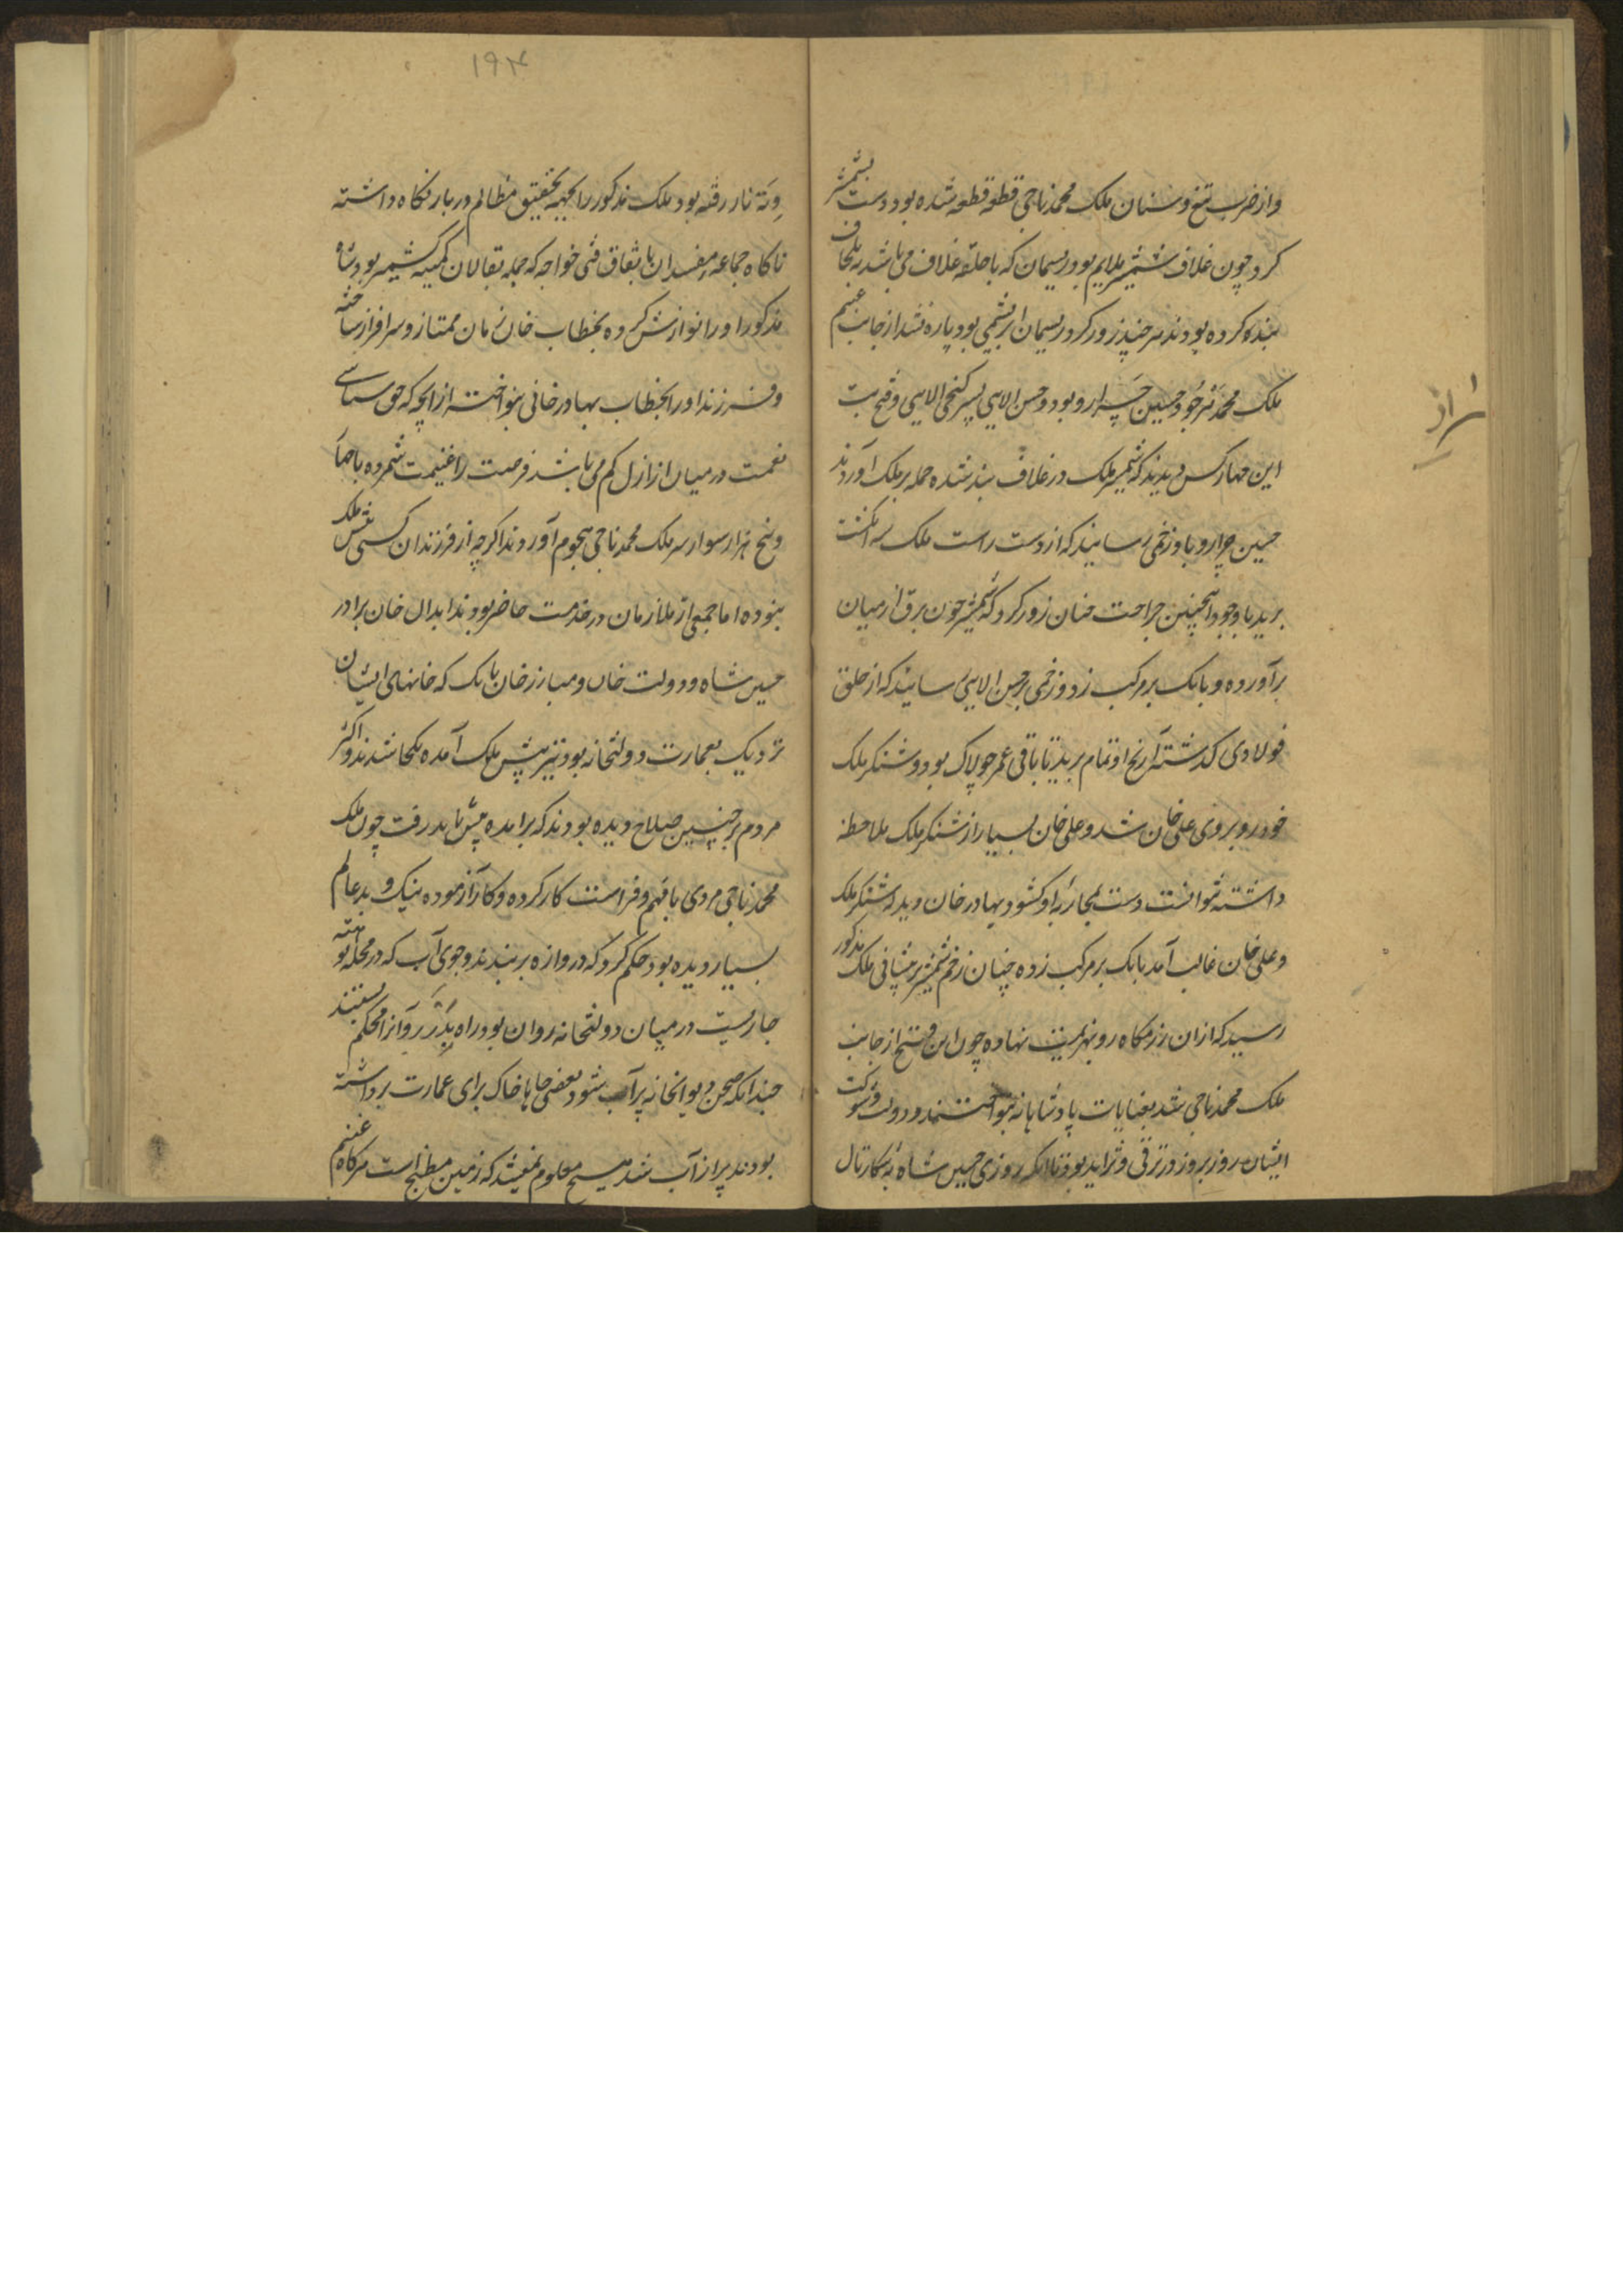 و از ضرب تیغ و سنان ملک محمد ناجی قطعه قطعه شده بود دست بشمشیر
کرد چون غلاف شمشیر ملایم بود ریسمان که با حلقه غلاف می باشد به غلاف
بنده کرده بودند هر چند زور کرد ریسمان ابریشمی بود پاره نشد از جانب غنیم
ملک محمد و حسین چرارو بود و حسن الایی پسر کنجی الایی و فتح بت
این چهار کس دیدند که شمشیر ملک در غلاف بند شده حمله بر ملک آوردند
حسین چرارو باو زخمی رسانید که از دست راست ملک سه انگشت
برید با وجود اینچنین جراحت چنان زور کرد که شمشیر چون برق از میان
برآورده و بانک بر مرکب زد و زخمی بر حسن الایی رسانید که از حلق
فولادی کذشته آرنج او تمام برید تا باقی عمر چولاک بود و شنکر ملک
خود رو بروی علی خان شد و علی خان بسیار از شنکر ملک ملاحظه
داشته نتوانست دست بمحاربه او کشود بهادر خان دید که شنکر ملک
و علی خان غالب آمد بانک بر مرکب زده چنان زخم شمشیر بر پیشانی ملک مذکور
رسید که ازان رزمکاه رو بهزیمت نهاده چون این فتح از جانب
ملک محمد ناجی شد بعنایات پادشاهانه بنواختند و دولت و شوکت
ایشان روز بروز در ترقی و تزاید بود تا آنکه روزی حسین شاه بشکار تال
۱۹۴
ونته نار رفته بود ملک مذکور را بجهة تحقیق مظالم در بار نکاه داشته
ناکاه جماعه مفسدان باتفاق فتی خواجه که جمله بقالان کمینه کشمیر بود و شاه
مذکور او را نوازش کرده بخطاب خان زمان ممتاز و سرافراز ساخته
و فرزند او را بخطاب بهادر خانی بنواخته از انچه که حق شناسی
نعمت در میان ارازل کم می باشد فرصت را غنیمت شمرده با چهار
و پنج هزار سوار سر ملک محمد ناجی هجوم آوردند اکرچه از فرزندان کسی پیش ملک
نبوده اما جمعی از ملازمان در خدمت حاضر بودند ابدال خان برادر
حسین شاه و دولت خان و مبارز خان بانک که خانهای ایشان
نزدیک بعمارت دولتخانه بود نیز پیش ملک آمده یکجا شدند و اکثر
مردم بر چنین صلاح دیده بودند که برآمده پیش باید رفت چون ملک
محمد ناجی مردی با فهم و فراست کار کرده و کار آزموده نیک و بد عالم
بسیار دیده بود حکم کرد که دروازه بر بندند و جوی آب که در محله نوهته
جاریست در میان دولتخانه روان بود راه بدر رو آنرا محکم بستند
چندانکه صحن دیوانخانه پر آب شود بعضی جاها خاک برای عمارت برداشته
بودند پر از آب شد هیچ معلوم نمیشد که زمین مسطح است هرکاه غنیم